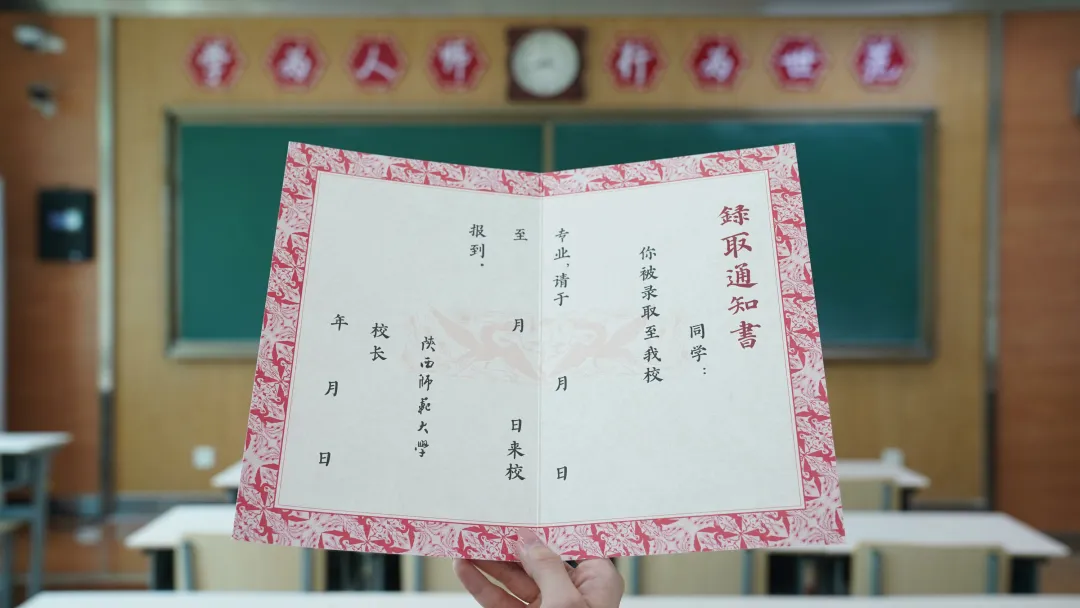 学为人师
行为世范
録取通知書
同学：
你被录取至我校
专业，请于
月
日
至
月
日来校
报到.
陕西师範大學
校长
年
月
日